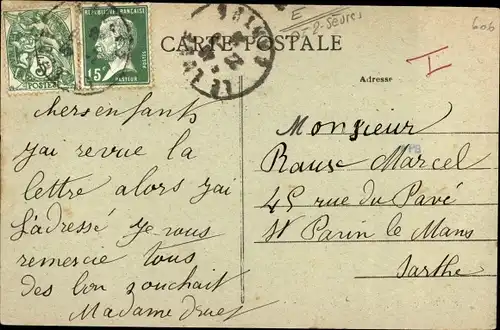 E
2-Sèvres
606
CARTE POSTALE
RÉPUBLIQUE FRANÇAISE
5
POSTES
15
POSTES
PASTEUR
Adresse
I
chers enfants
j'ai revue la
lettre alors j'ai
l'adressé je vous
remercie tous
des bon zouchait
Madame
Monsieur
Raux Marcel
45 rue du Pavé
St Pavin le Mans
Sarthe